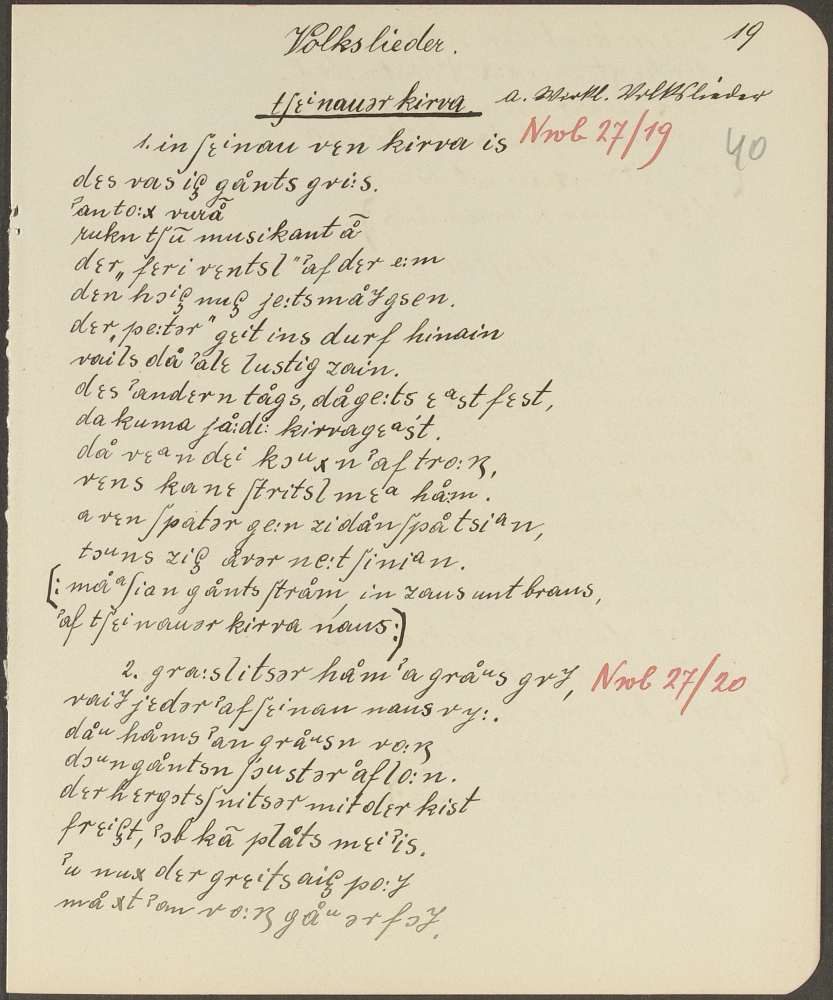 19
Volkslieder.
tʃɛinauər kirva a. Wirkl. Volkslieder
1. in ʃɛinau vɛn kirva is Nwb 27/19
40
dɛs vas iꞔ gånts gvi:s.
ʾan to:x vurå̄
rukn tʃū musikant å̄
dɛr „fɛri vɛntsl" ʾaf dɛr e:m
dɛn hɔiꞔ nuꞔ je:tsmåʒgsen.
dɛr „pe:tər" gɛit ins durf hinain
vails då ʾalɛ lustig zain.
dɛs ʾandɛrn tågs, då ge:ts ɛᵃst fɛst,
da kuma jå:di: kirvagɛᵃst.
då vɛᵃn dɛi kɔᵘxn ʾaf tro:ʁ,
vɛns kanɛ ʃtritsl mɛᵃ hå:m.
a vɛn ʃpatər ge:n zi dån ʃpåtsiᵃn,
tɔᵘns ziꞔ åvər ne:t ʃiniᵃn.
[: måᵃʃian gånts ʃtråm, in zaus unt braus,
ʾaf tʃɛinauər kirva naus:]
2. gra:slitsər håm ʾa gråᵘs gvʒ, Nwb 27/20
vaiʒ jedər ʾaf ʃɛinau naus vy:.
dåᵘ håms ʾan gråᵘsn vo:ʁ
dɔᵘn gåntsn ʃɔᵘstər åflo:n.
dɛr hɛrgɔtsʃnitsər mit dɛr kist
frɛiꞔt, ʾɔb kā plåts mɛi ʾis.
ʾu nux dɛr grɛitsaiꞔ po:ʒ
måxt ʾan vo:ʁ gåᵘ ər fɔʒ.